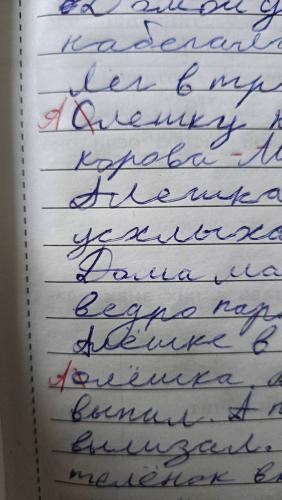 Домой
набегалс
Лег в тр
А Олешку н
корова - М
Алешка
усхлыха
Дома ма
ведро пар
Алёшке в
А олёшка.
выпил. А п
вылизал.
телёнок вы